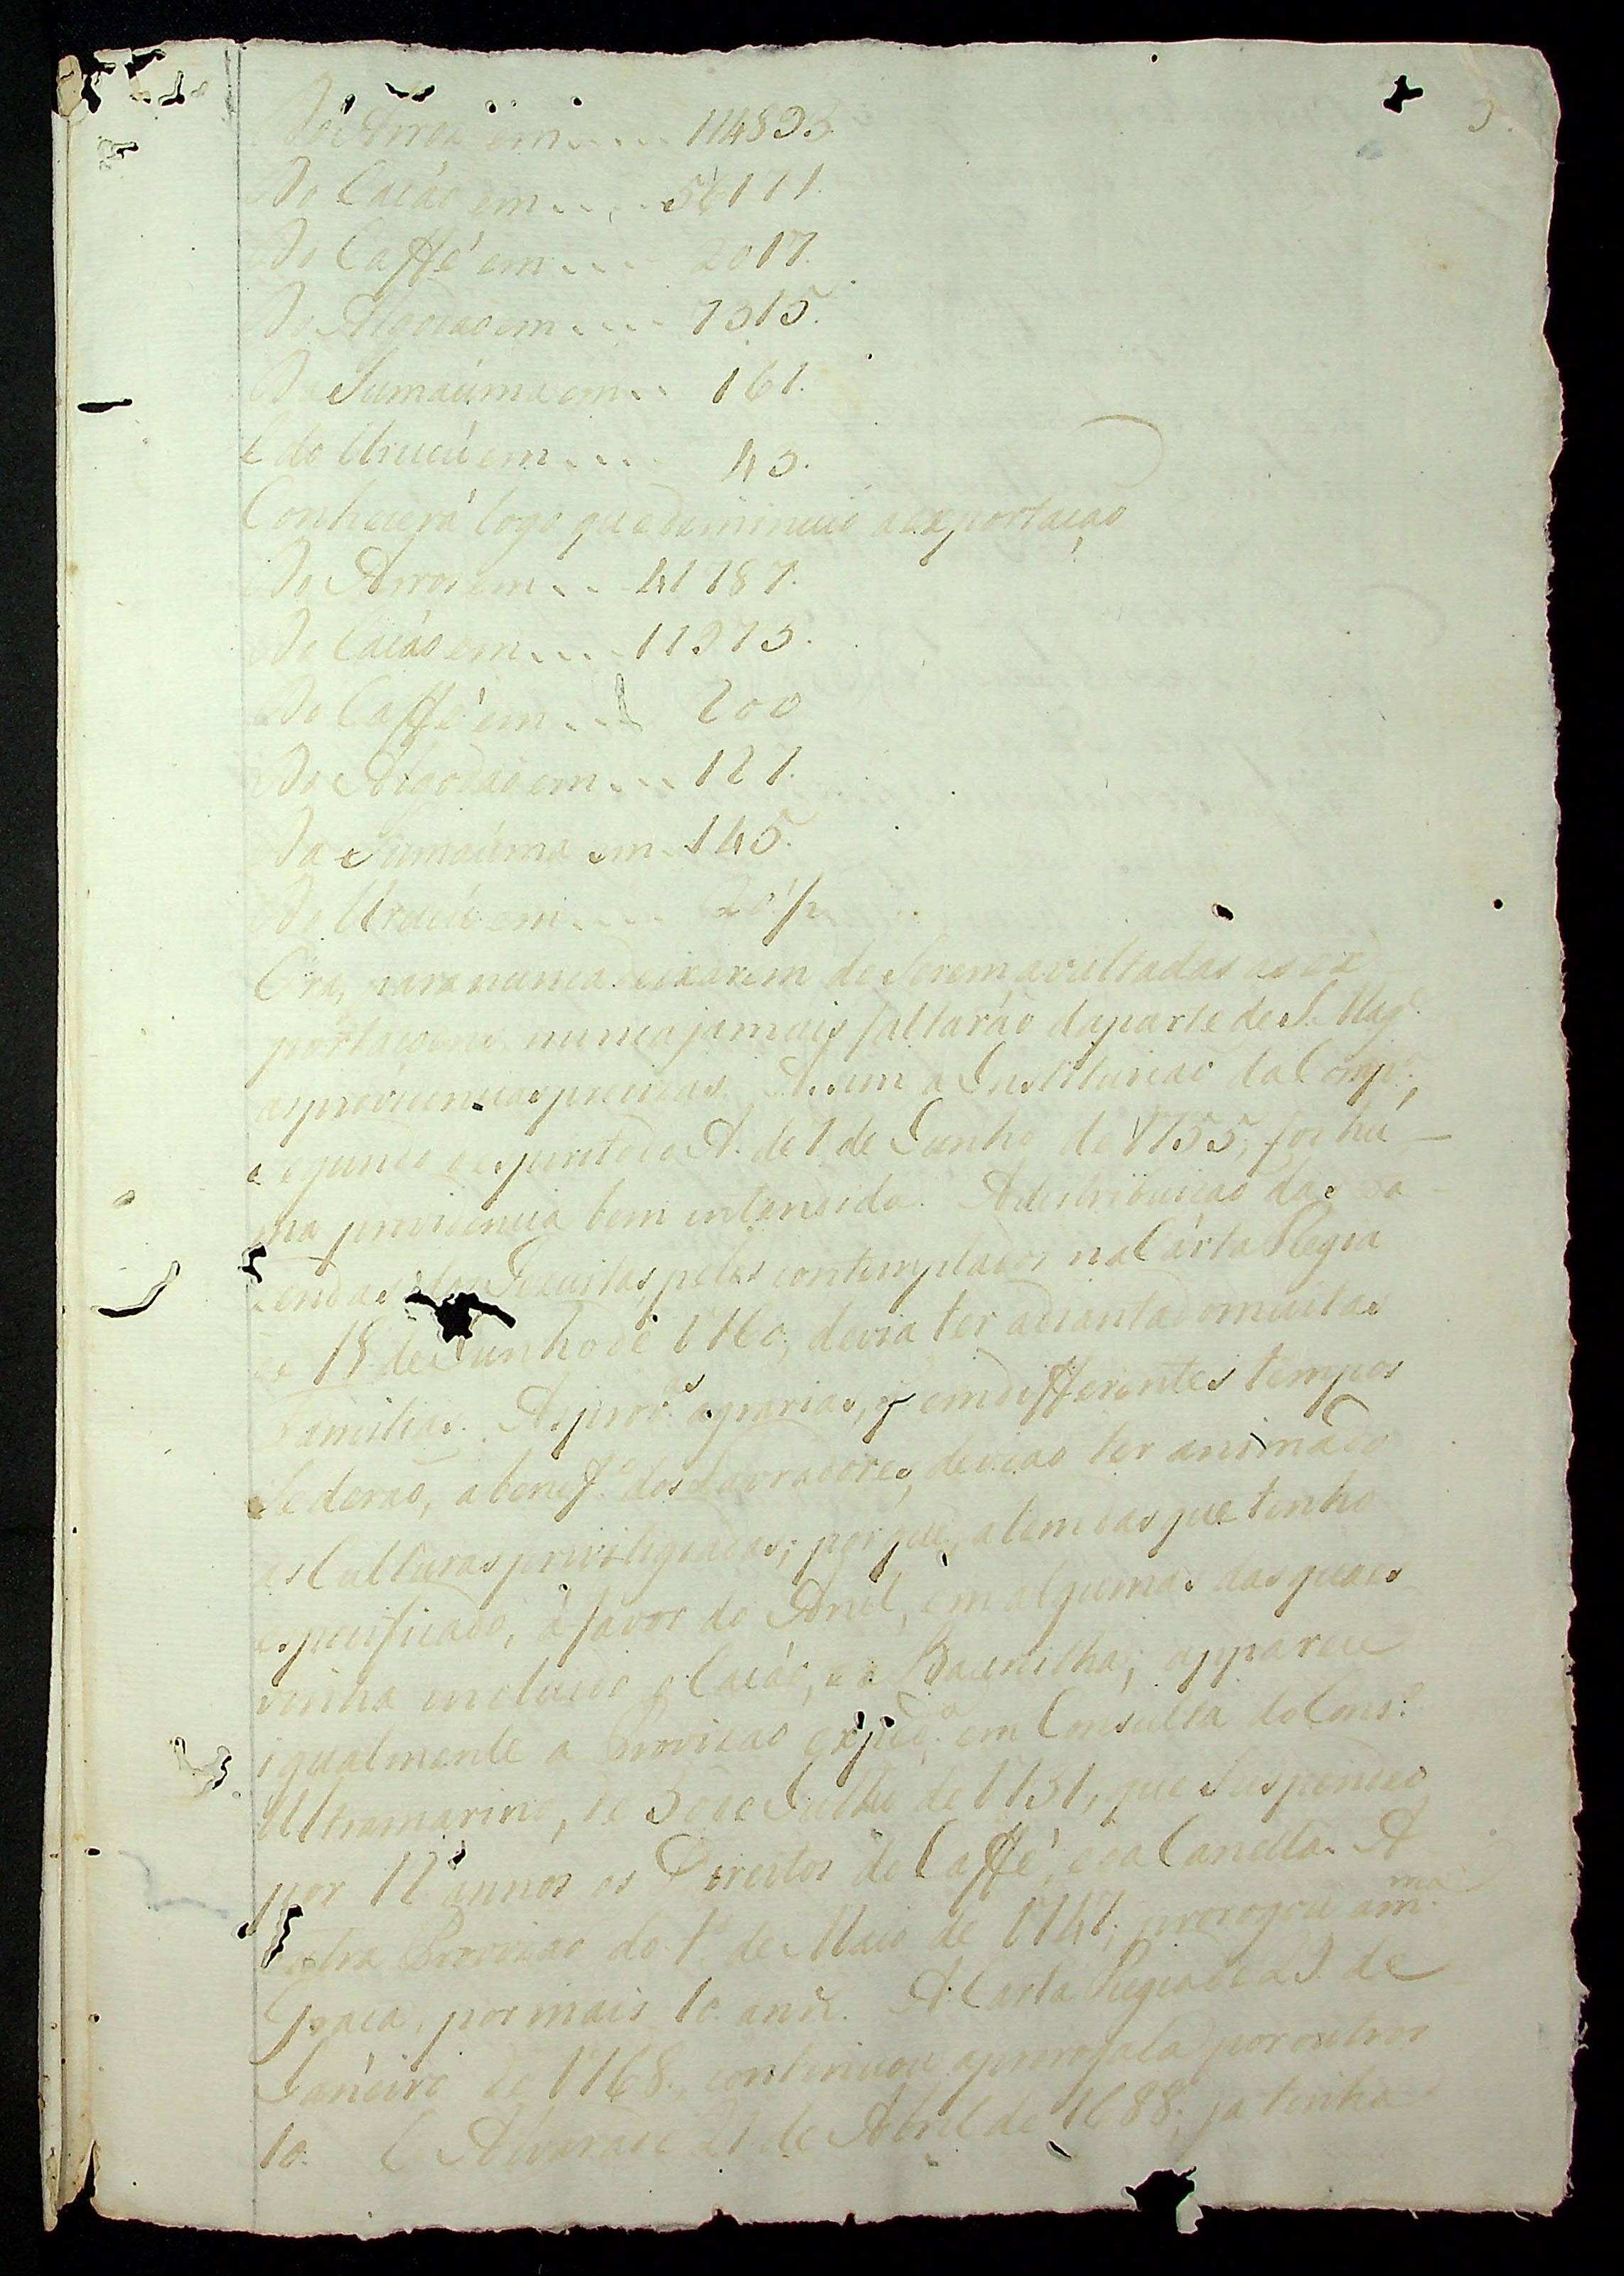 Do Arroz em.... 114893.
Do Cacáo em.... 56111.
Do Caffé em... 2017.
Do Algodao em.... 7315.
Da Sumaúma em.. 161.
E do Urucú em.... 43.
Conhecerá logo que deminuio a exportaçao
Do Arroz em.. 41187.
Do Cacáo em.... 11973.
Do Caffé em... 200
Do Algodaõ em... 121.
Da Sumaúma em. 145.
Do Urucú em....
Ora, para nunca deixarem de Serem avultadas as ex
portaçoens nunca jamais faltaráõ da parte de S. Mag.e
as providencias precizas. Assim a Instituiçaõ da Comp.a,
segundo o espirito do A. de 7 de Junho de 1755, foi hu-
ma providencia bem entendida. A destribuiçaõ das fa-
zendas dos Jezuitas, pelos contemplados na Cárta Regia
de 18 de Junho de 1760, devia ter adiantado muitas
familias. As prov.as agrarias, q em differentes tempos
Se deraõ, a benef.o dos Lavradores, deviaõ ter animado
as Culturas privilegiadas; porque, alem das que tenho
especificado, a favor do Anil, em algumas das quaes
vinha incluido o Cacáo, e a Baunilha; apparece
igualmente a Provizaõ exped.a em Consulta do Cons.o
Ultramarino, de 5 de Julho de 1731, que Suspendeo
por 12 annos os Direitos do Caffé, e da Canella. A
outra Provizaõ do 1.o de Maio de 1747, prorogou a m.ma
Graça, por mais 10. ann. A Carta Regia de 29. de
Janeiro de 1768. continuou a prorogala por outros
10. E Alvará de 21 de Abril de 1688. ja tinha